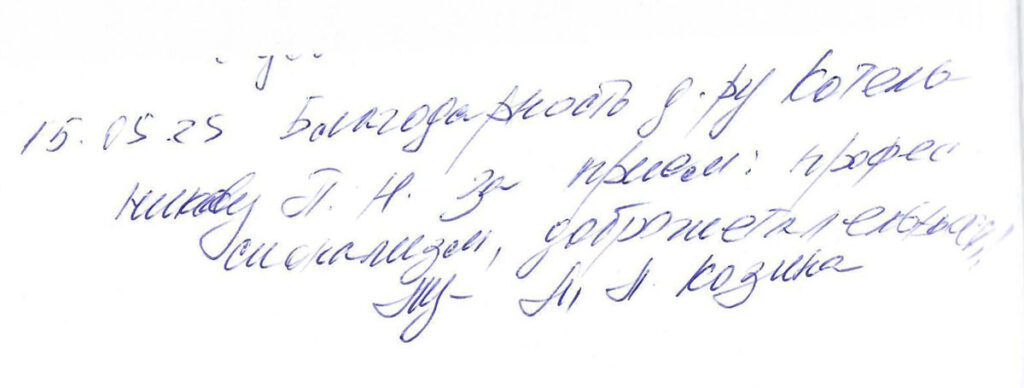 15.05.25 Благодарность д-ру Котель
никову П. Н. За прием: профес
сионализм, доброжелательность,
Козина